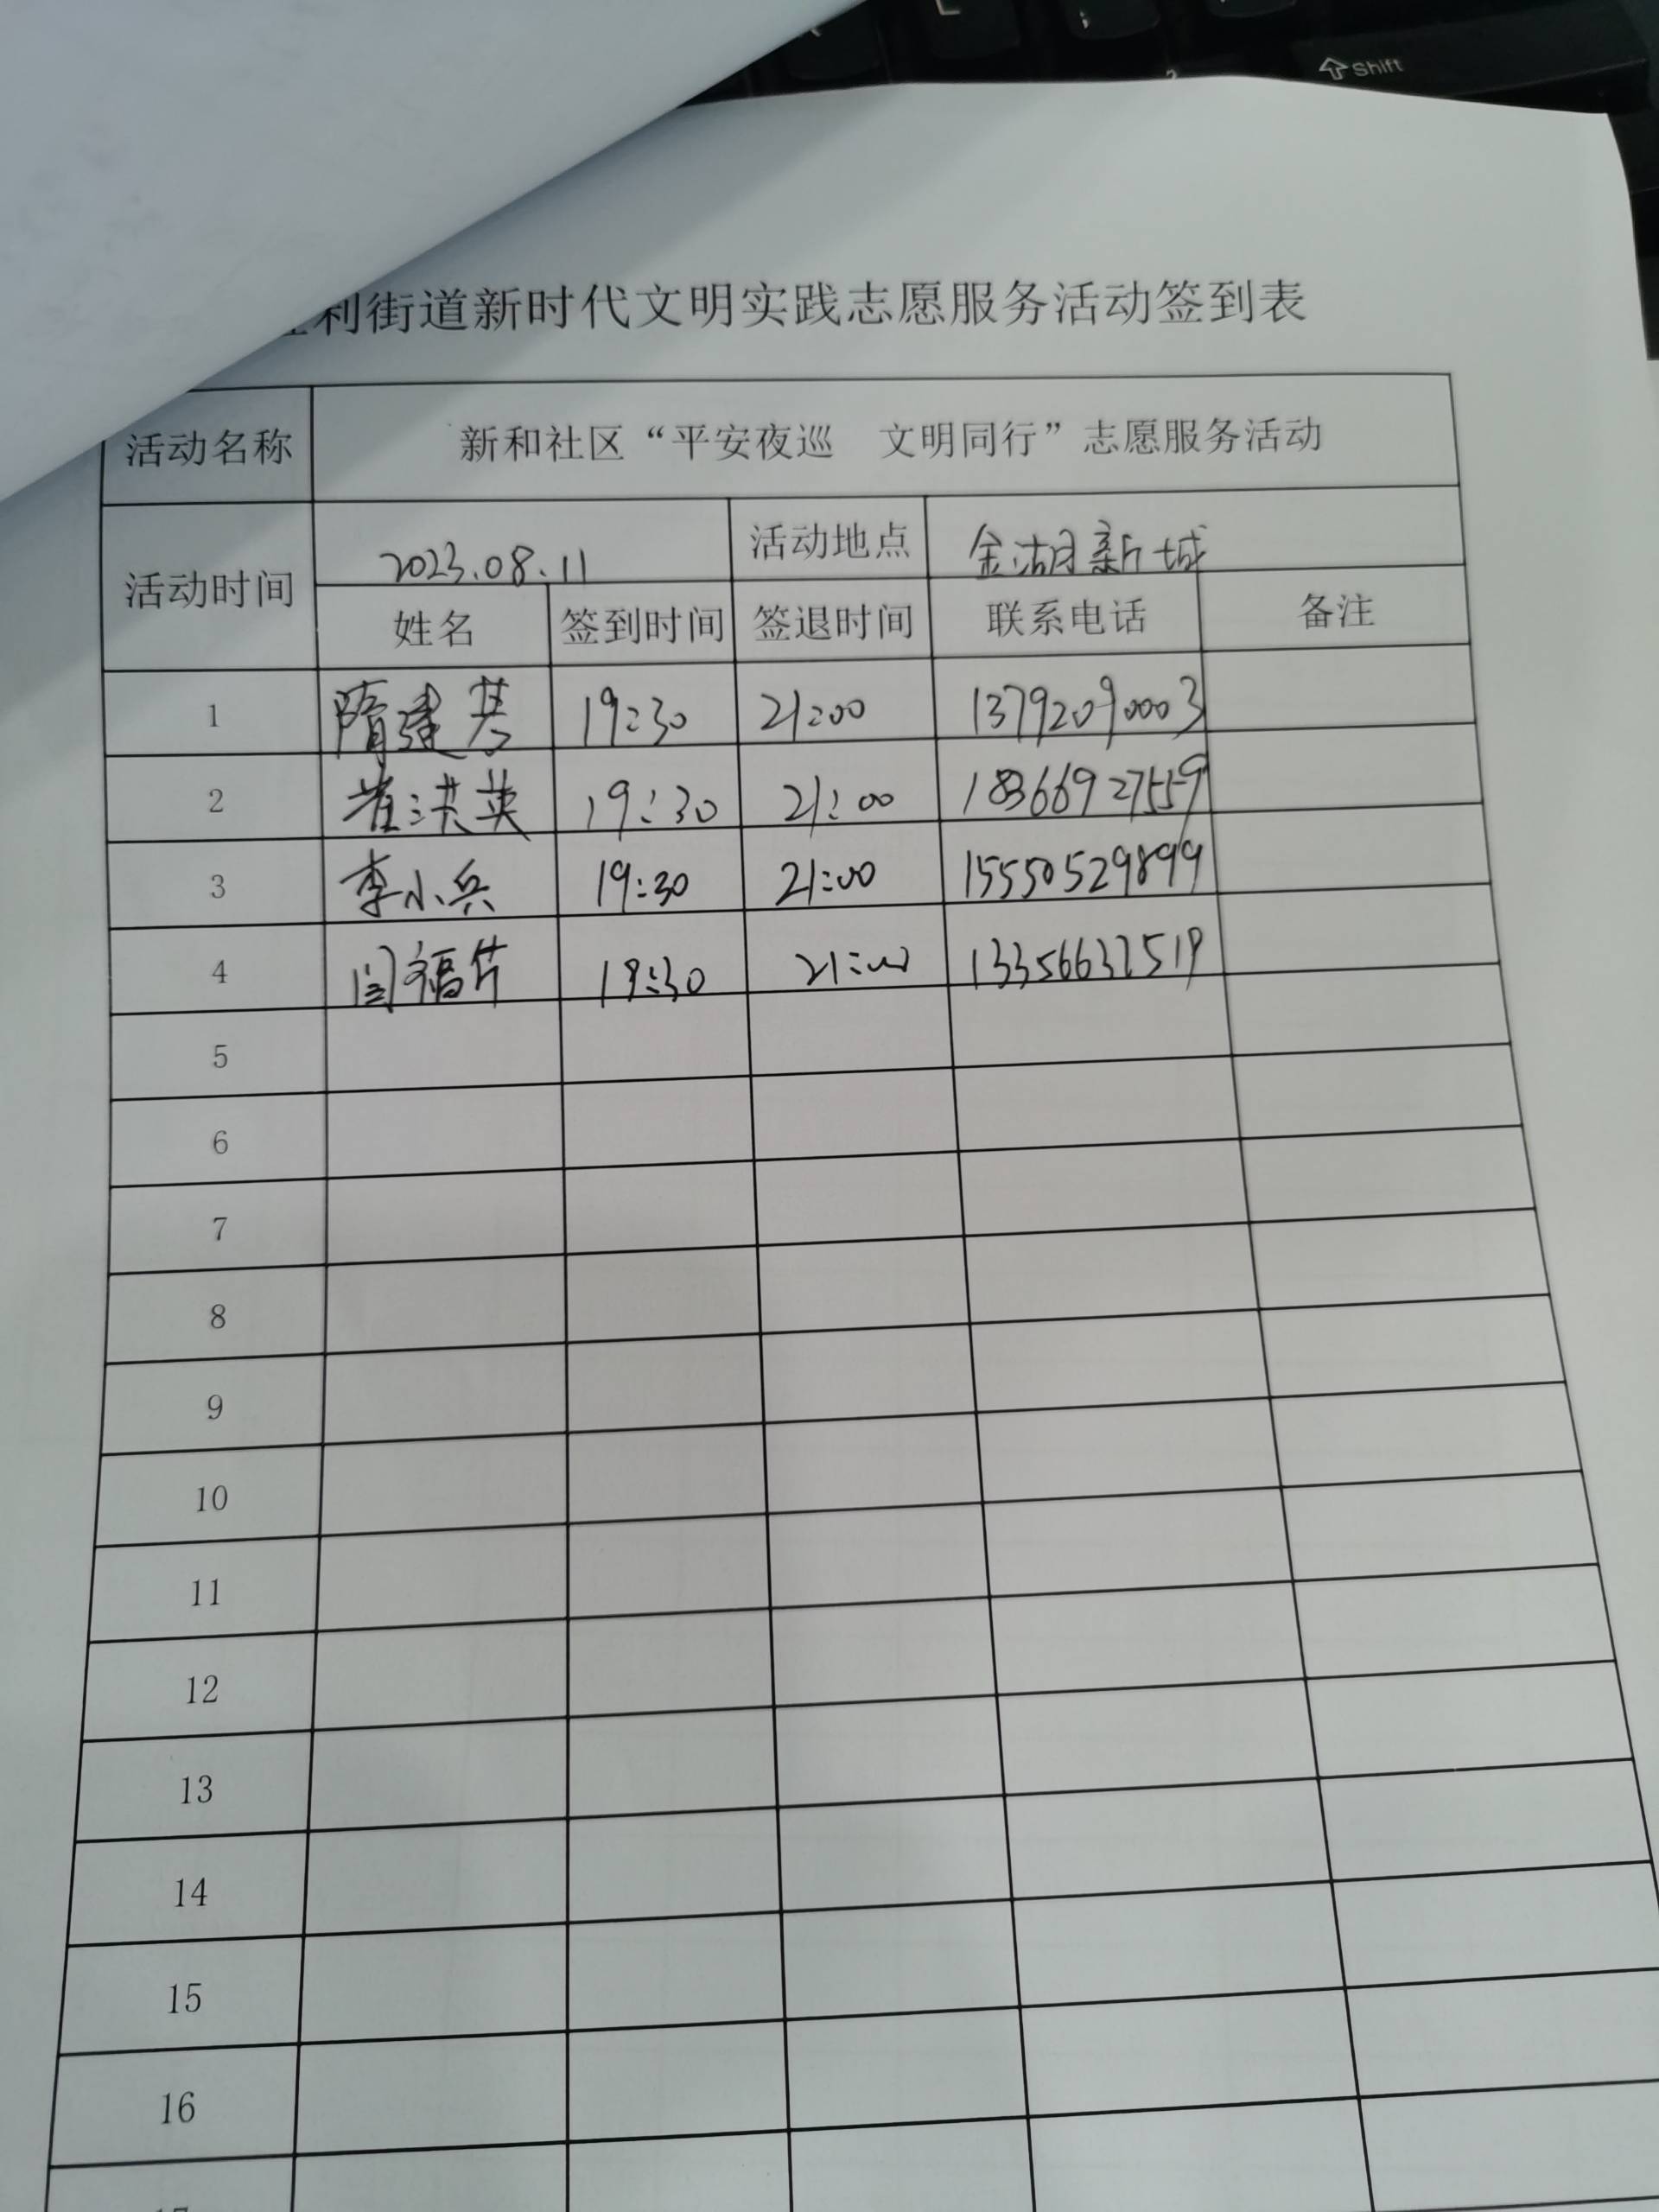 利街道新时代文明实践志愿服务活动签到表
活动名称 新和社区“平安夜巡 文明同行”志愿服务活动
活动时间 2023.08.11 活动地点 金湖新城
姓名 签到时间 签退时间 联系电话 备注
1 隋建 19:30 21:00 13792090003
2 崔洪英 19:30 21:00 18366927559
3 李小兵 19:30 21:00 15550529899
4 闫福芹 19:30 21:00 13356632519
5
6
7
8
9
10
11
12
13
14
15
16
Shift